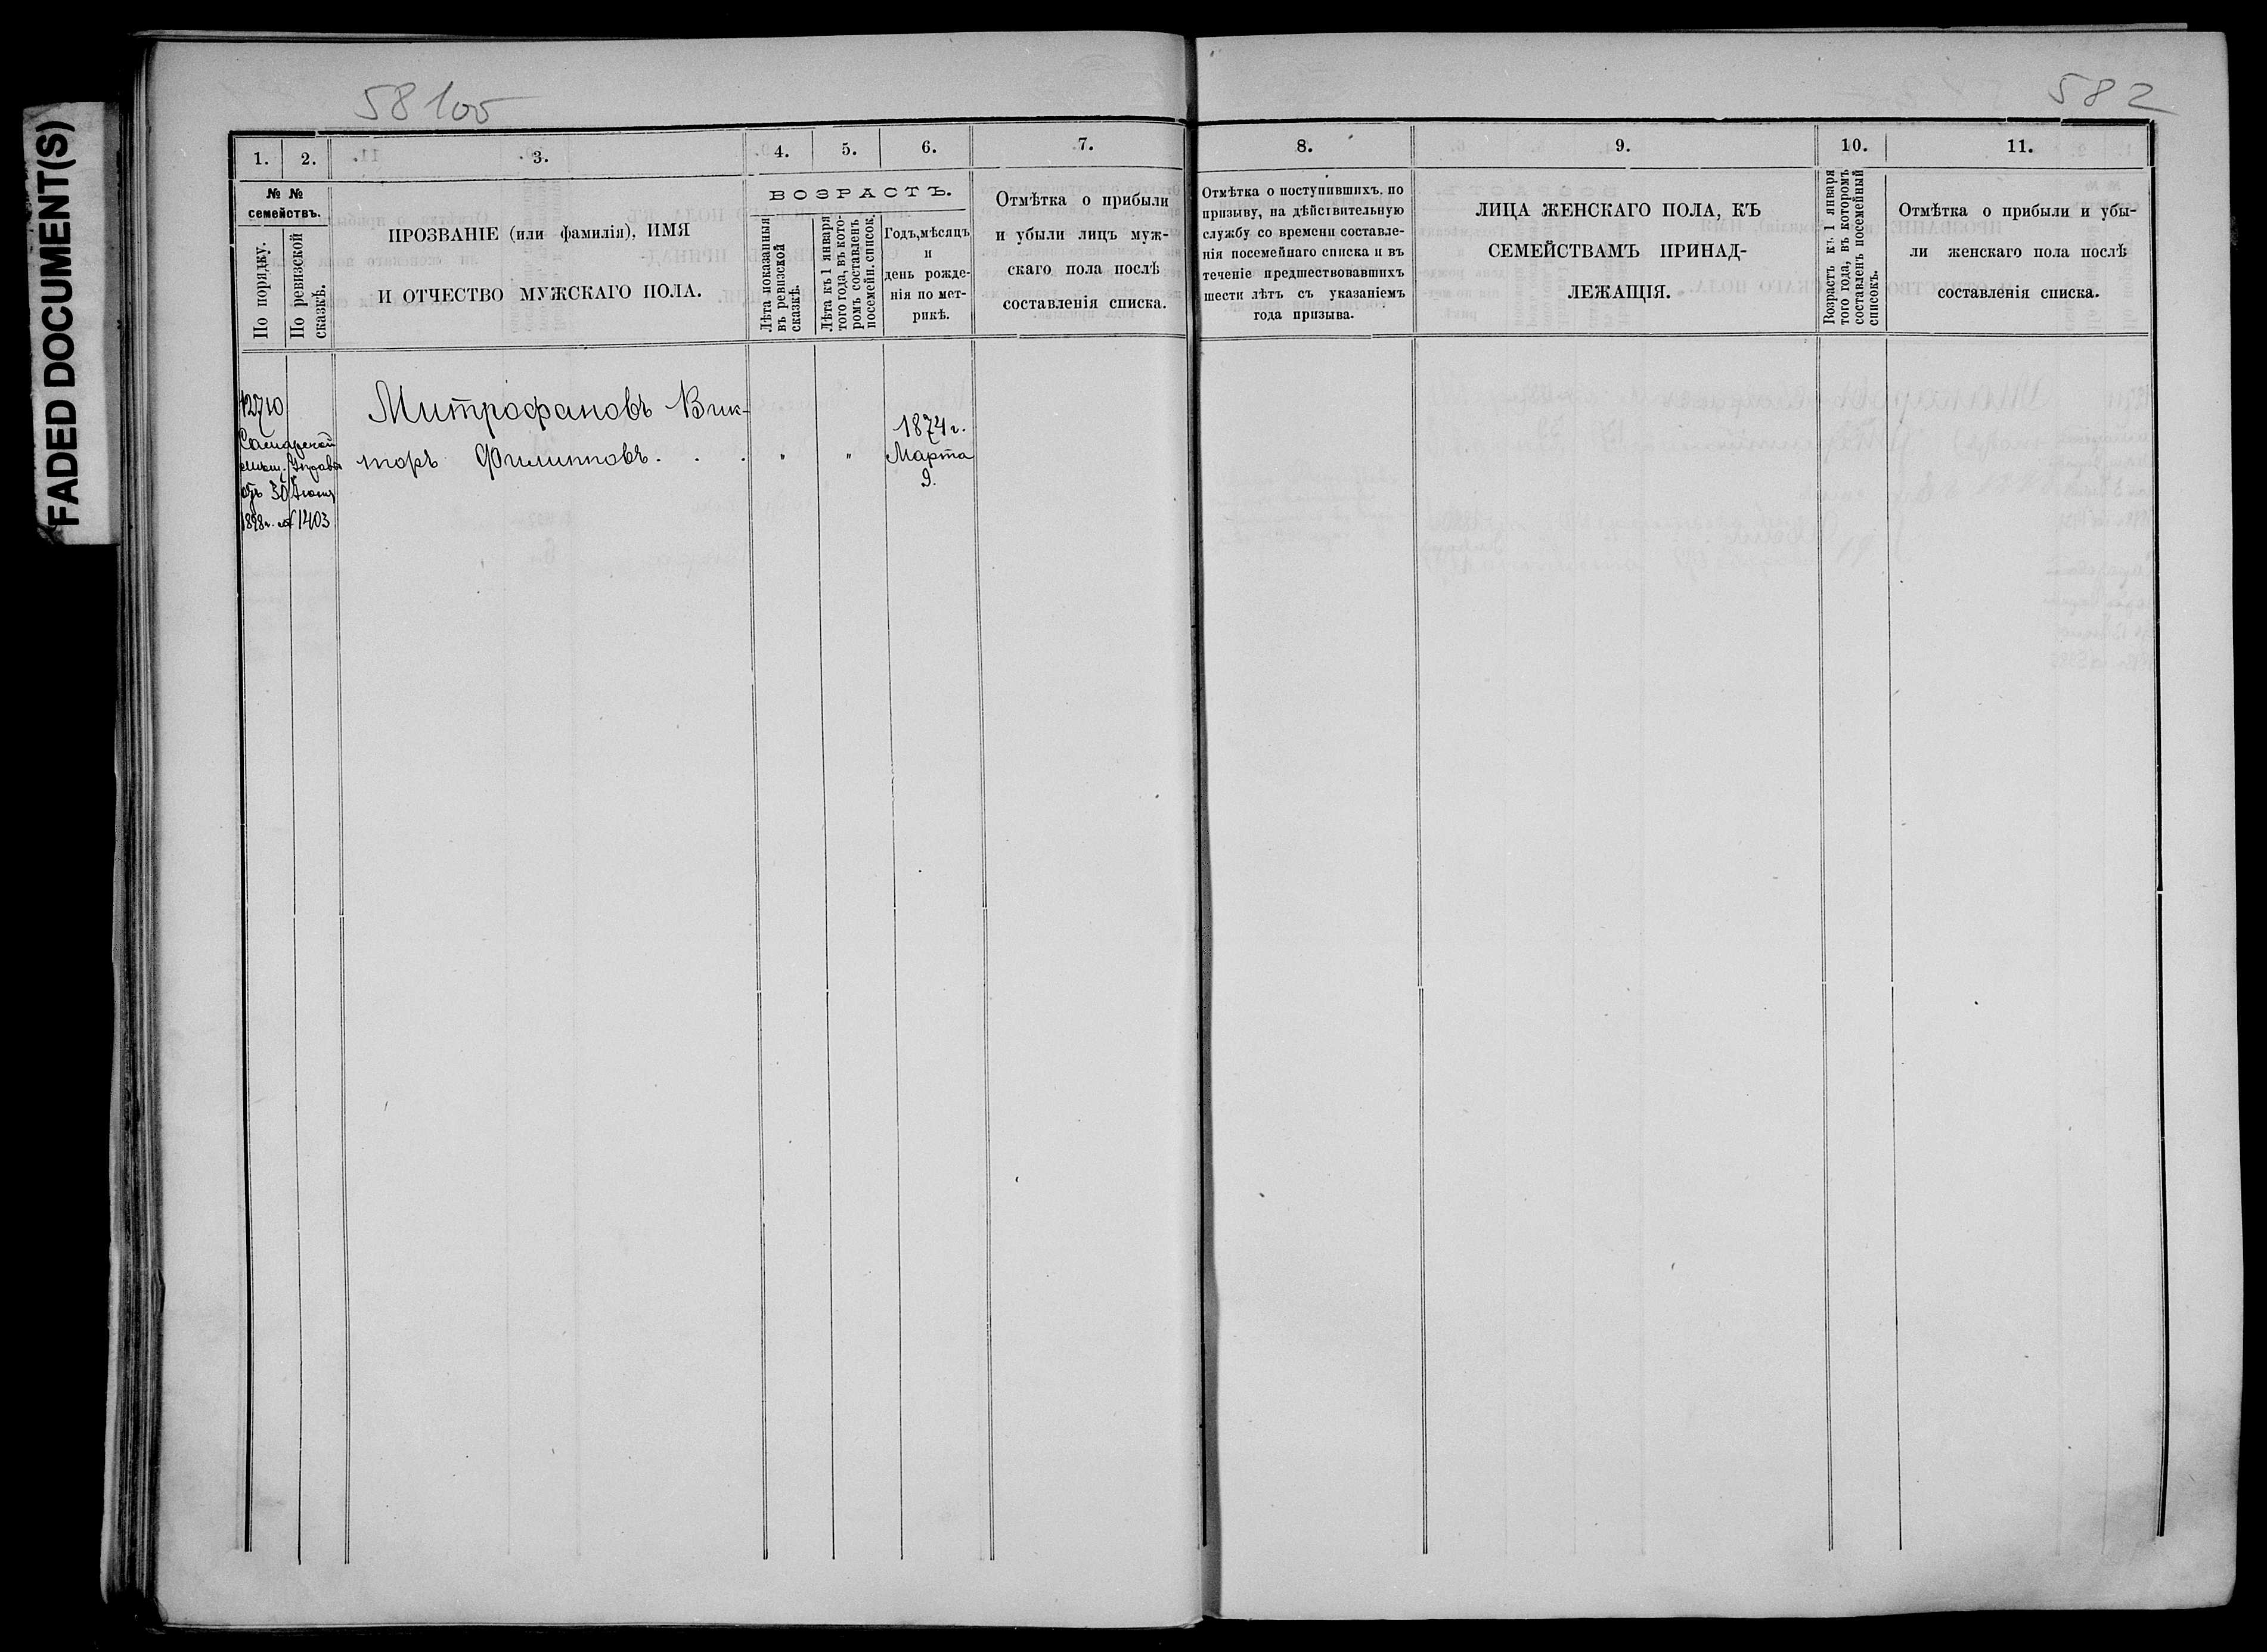 FADED DOCUMENT(S)
58 100
582
1. 2. 3. 4. 5. 6. 7. 8. 9. 10. 11.
№ №
семействъ.
По порядку.
По ревизской
сказкѣ.
ПРОЗВАНІЕ (или фамилія), ИМЯ
И ОТЧЕСТВО МУЖСКАГО ПОЛА.
ВОЗРАСТЪ.
Лѣта показанныя
въ ревизской
сказкѣ.
Лѣта къ 1 января
того года, въ кото-
ромъ составленъ
посемейн. список.
Годъ, мѣсяцъ
и
день рожде-
нія по мет-
рикѣ.
Отмѣтка о прибыли
и убыли лицъ муж-
скаго пола послѣ
составленія списка.
Отмѣтка о поступившихъ. по
призыву, на дѣйствительную
службу со времени составле-
нія посемейнаго списка и въ
теченіе предшествовавшихъ
шести лѣтъ съ указаніемъ
года призыва.
ЛИЦА ЖЕНСКАГО ПОЛА, КЪ
СЕМЕЙСТВАМЪ ПРИНАД-
ЛЕЖАЩІЯ.
Возрастъ къ 1 января
того года, въ которомъ
составленъ посемейный
списокъ.
Отмѣтка о прибыли и убы-
ли женскаго пола послѣ
составленія списка.
12710
Самарской
мѣщ. Управы
отъ 30 Іюня
1898 г. № 1403
Митрофановъ Вик-
торъ Филипповъ. . .
" "
1874 г.
Марта
9.